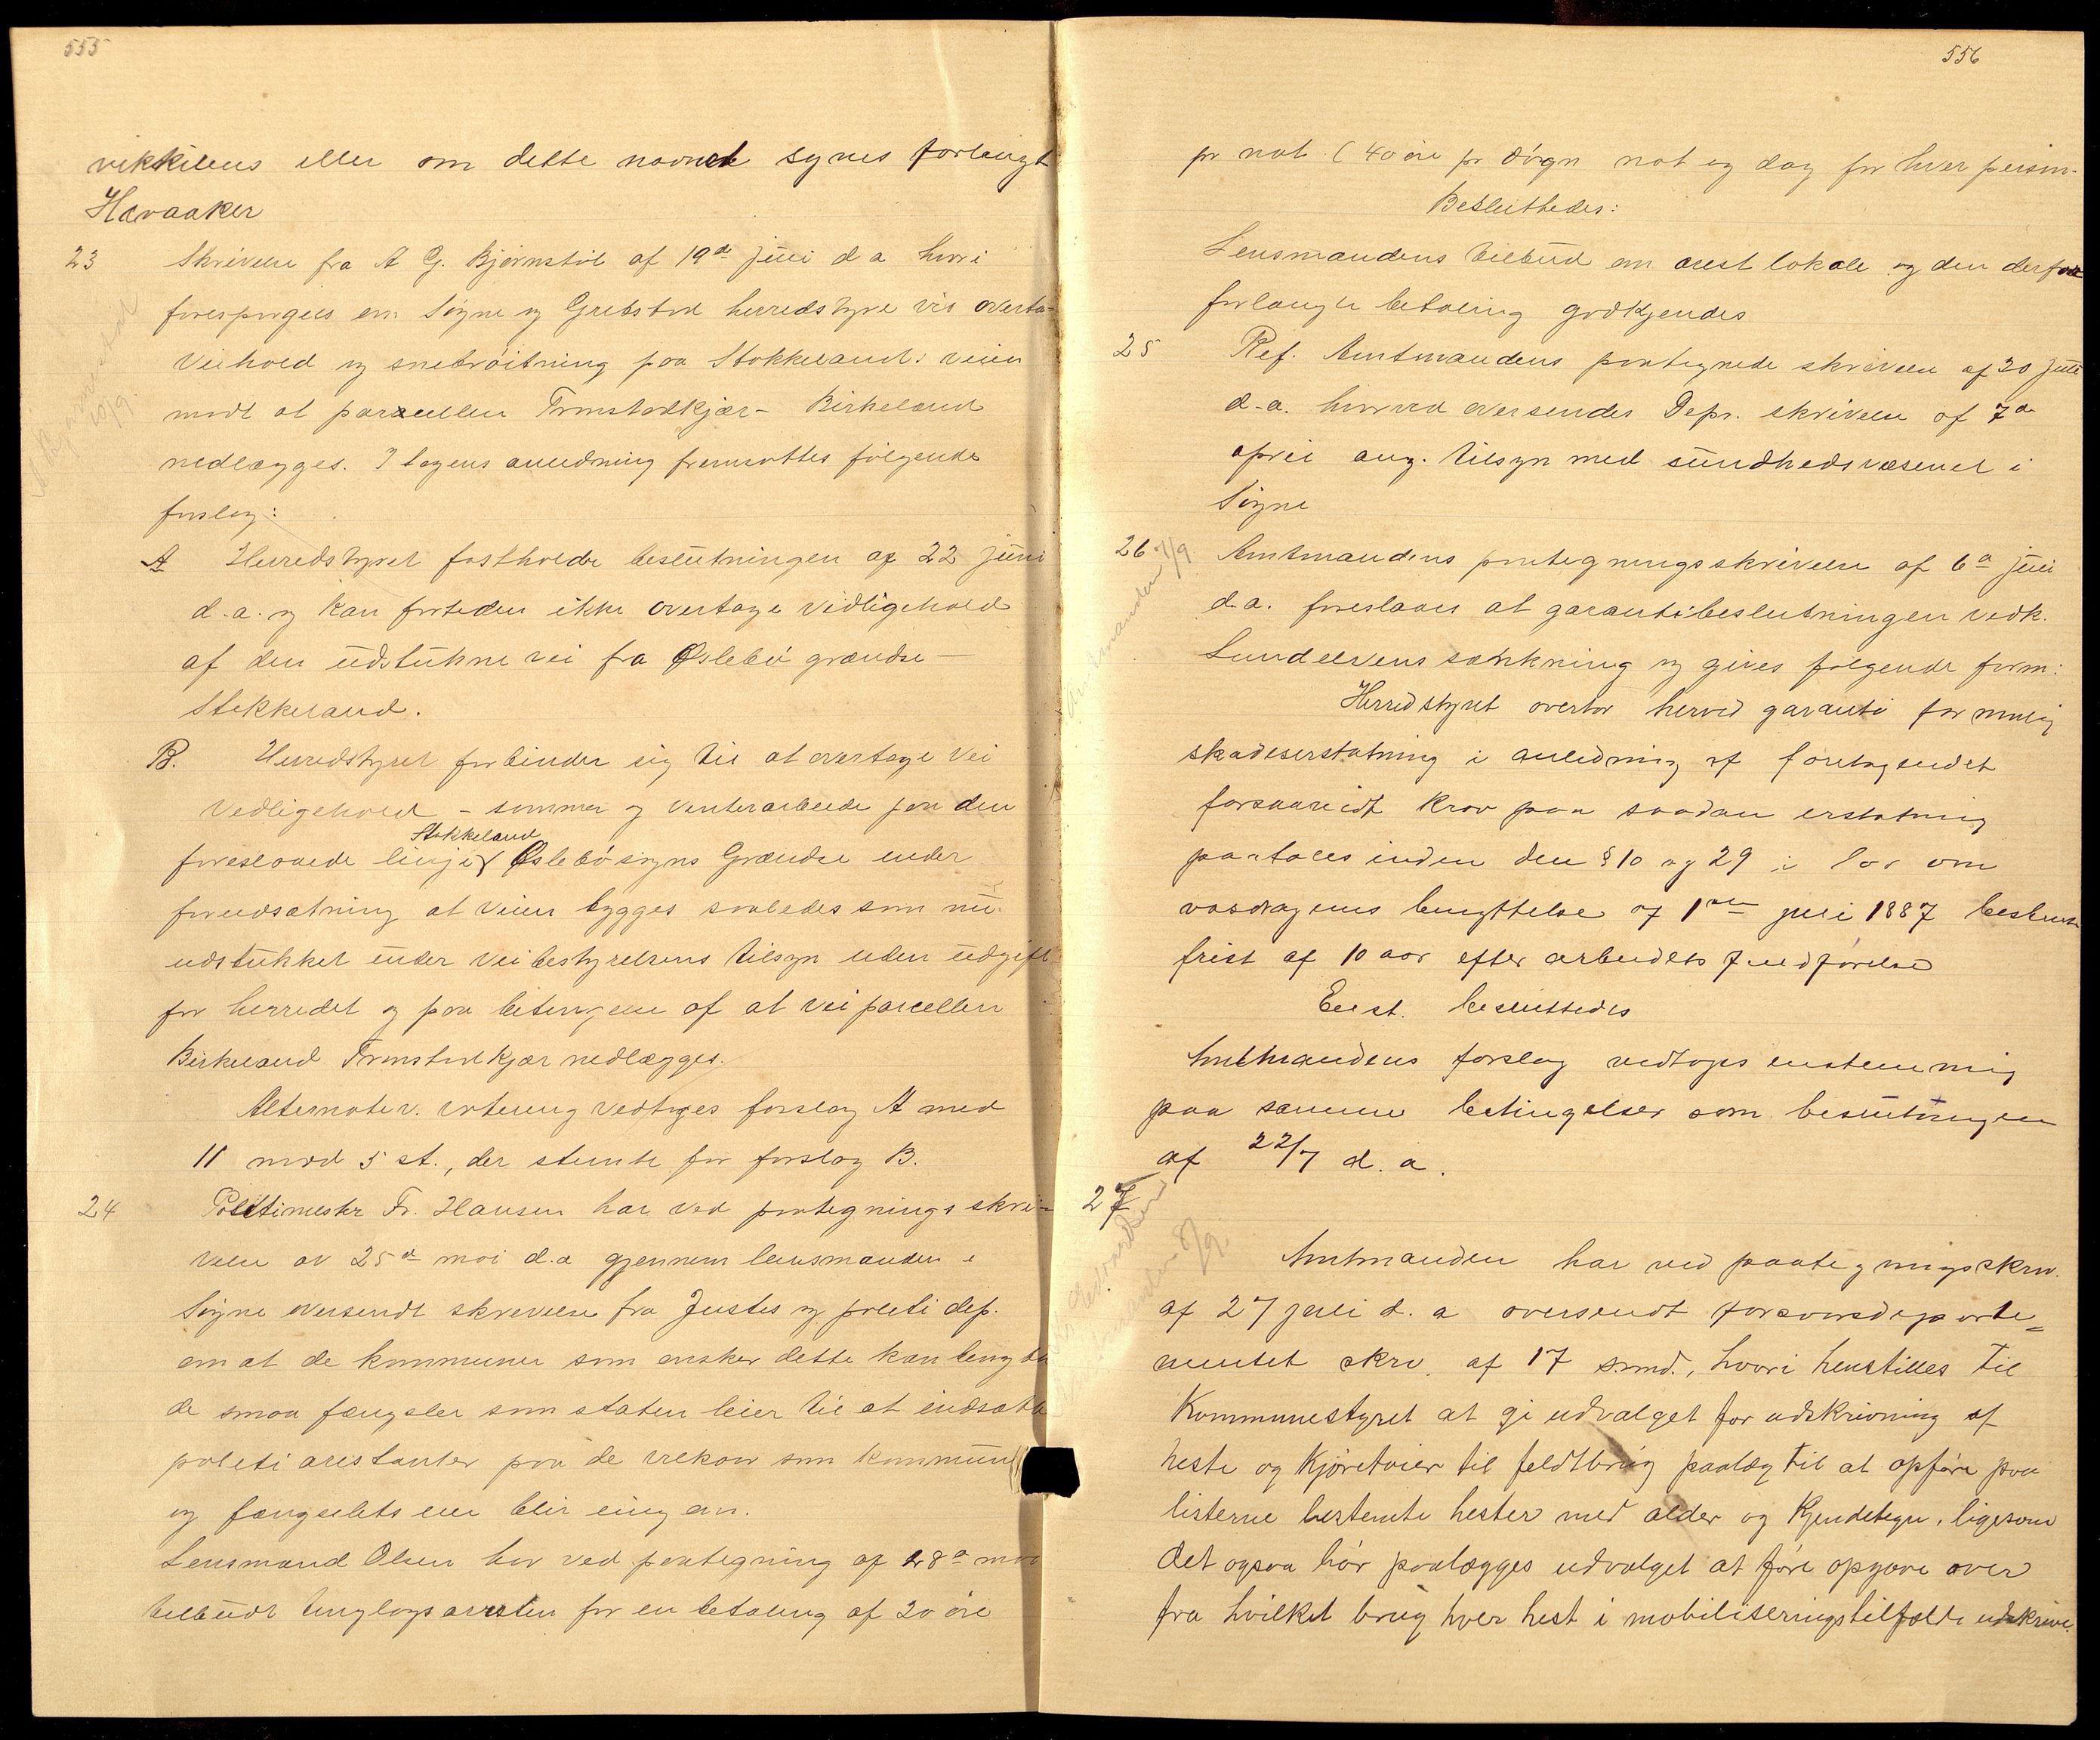 555
vikkilens eller om dette navnet synes forlengt
Havaaker
23 Skrivelse fra A G. Bjørnstøl af 19de juli d a hvori
forespørges om Søgne og Greibstad herredstyre vis overta-
veihold og snebrøitning paa Stokkeland. veien
modt at parzellen Tronstadkjær - Birkeland
nedlægges. I sagens anledning fremsattes følgende
forslag:
A Herredstyret fastholder beslutningen af 22 juni
d.a. og kan fortiden ikke overtage vedligehold
af den udstukne vei fra Øslebø grændse -
Stokkeland.
B. Herredstyret forbinder sig til at overtage vei
vedligehold - sommer og vinterarbeide paa den
Stokkeland
foreslaaede linje Øslebø sogns Grændse under
forudsætning at veien bygges saaledes som nu
udstukket under veibestyrelsens tilsyn uden udgift
for herredet og paa betingelse af at veiparcellen
Birkeland Tronstadkjær nedlægges.
Alternativ. votering vedtoges forslag A med
11 mod 5 st., der stemte for forslag B.
24 Politimestr Fr. Hansen har ved paategnings skri-
velse av 25de mai d.a gjennem lensmanden i
Søgne oversendt skrivelse fra Justis og politi dep.
om at de kommuner som ønsker dette kan benytte
de smaa fængsler som staten leier til at indsætte
politi arestanter paa de vilkaar som kommune
og fængselets eier blir enig om.
Lensmand Olsen har ved paategning af 28de mai
tilbudt tinglagsarresten for en betaling af 20 øre
556
pr nat (40 øre pr døgn nat og dag for hver person.
Besluttedes:
Lensmandens tilbud om arest lokale og den derfor
forlangte betaling godkjendes
25 Ref. Amtmandens paategnede skrivelse af 20 juli
d.a. hvorved oversendes Depr. skrivelse af 7de
april ang. tilsyn med sundhedsvæsenet i
Søgne
26 Amtmandens paategningsskrivelse af 6te juli
d.a. foreslaaes at garantibeslutningen vedk.
Lundelvens sænkning og gives følgende form:
Herredstyret overtar herved garanti for mulig
skadeserstatning i anledning af foretagendet
forsaavidt krav paa saadan erstatning
paatales inden den § 10 og 29 i lov om
vasdragenes benyttelse af 1ste juli 1887 bestemte
frist af 10 aar efter arbeidets fuldførelse
Enst. besluttedes
Amtmandens forslag vedtages enstemmig
paa samme betingelser som beslutningen
af 22/7 d. a.
27
Amtmanden har ved paategningsskriv.
af 27 juli d. a oversendt forsvarsdeparte-
mentet skriv. af 17 s.md., hvori henstilles til
Kommunestyret at gi udvalget for udskrivning af
heste og kjøretøier til feldtbrug paalæg til at opføre paa
listerne bestemte hester med alder og kjendetegn, ligesom
det ogsaa bør paalægges udvalget at føre opgave over
fra hvilket brug hver hest i mobiliseringstilfælde udskrive.